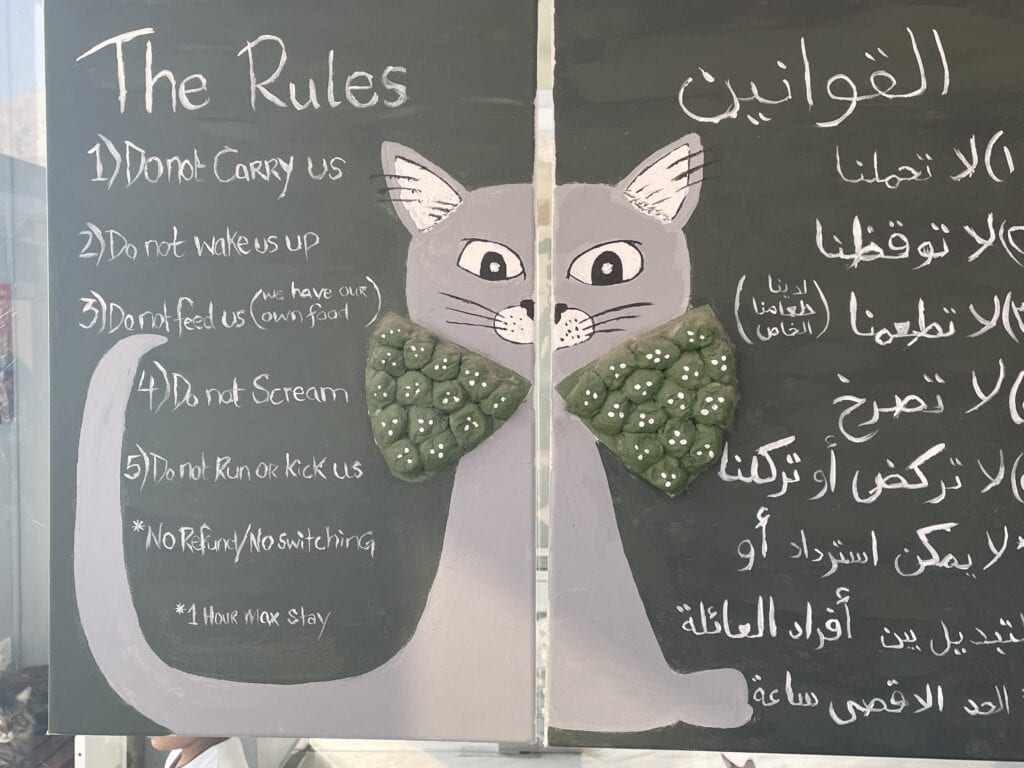 The Rules
1) Do not Carry us
2) Do not wake us up
3) Do not feed us (we have our own food)
4) Do not Scream
5) Do not Run or kick us
*No Refund/No switching
*1 Hour Max Stay
القوانين
١) لا تحملنا
٢) لا توقظنا
٣) لا تطعمنا (لدينا طعامنا الخاص)
لا تصرخ
لا تركض أو تركلنا
*لا يمكن استرداد أو
لتبديل بين أفراد العائلة
الحد الاقصى ساعة